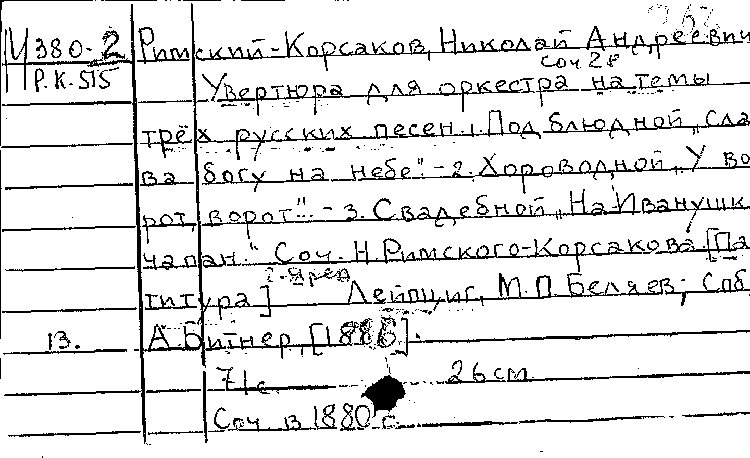 Ц 380-2 Римский-Корсаков, Николай Андреевич
Р.К. 515
соч 28
Увертюра для оркестра на темы
трёх русских песен 1. Подблюдной „Сла
ва богу на небе". - 2. Хороводной „У во
рот, ворот". - 3. Свадебной „На Иванушк
чапан." Соч. Н. Римского-Корсакова. [Па
2-я ред
титура] Лейпциг, М. П. Беляев; Спб,
13. А. Битнер, [1886].
71 с. 26 cm
Соч в 1880 г.